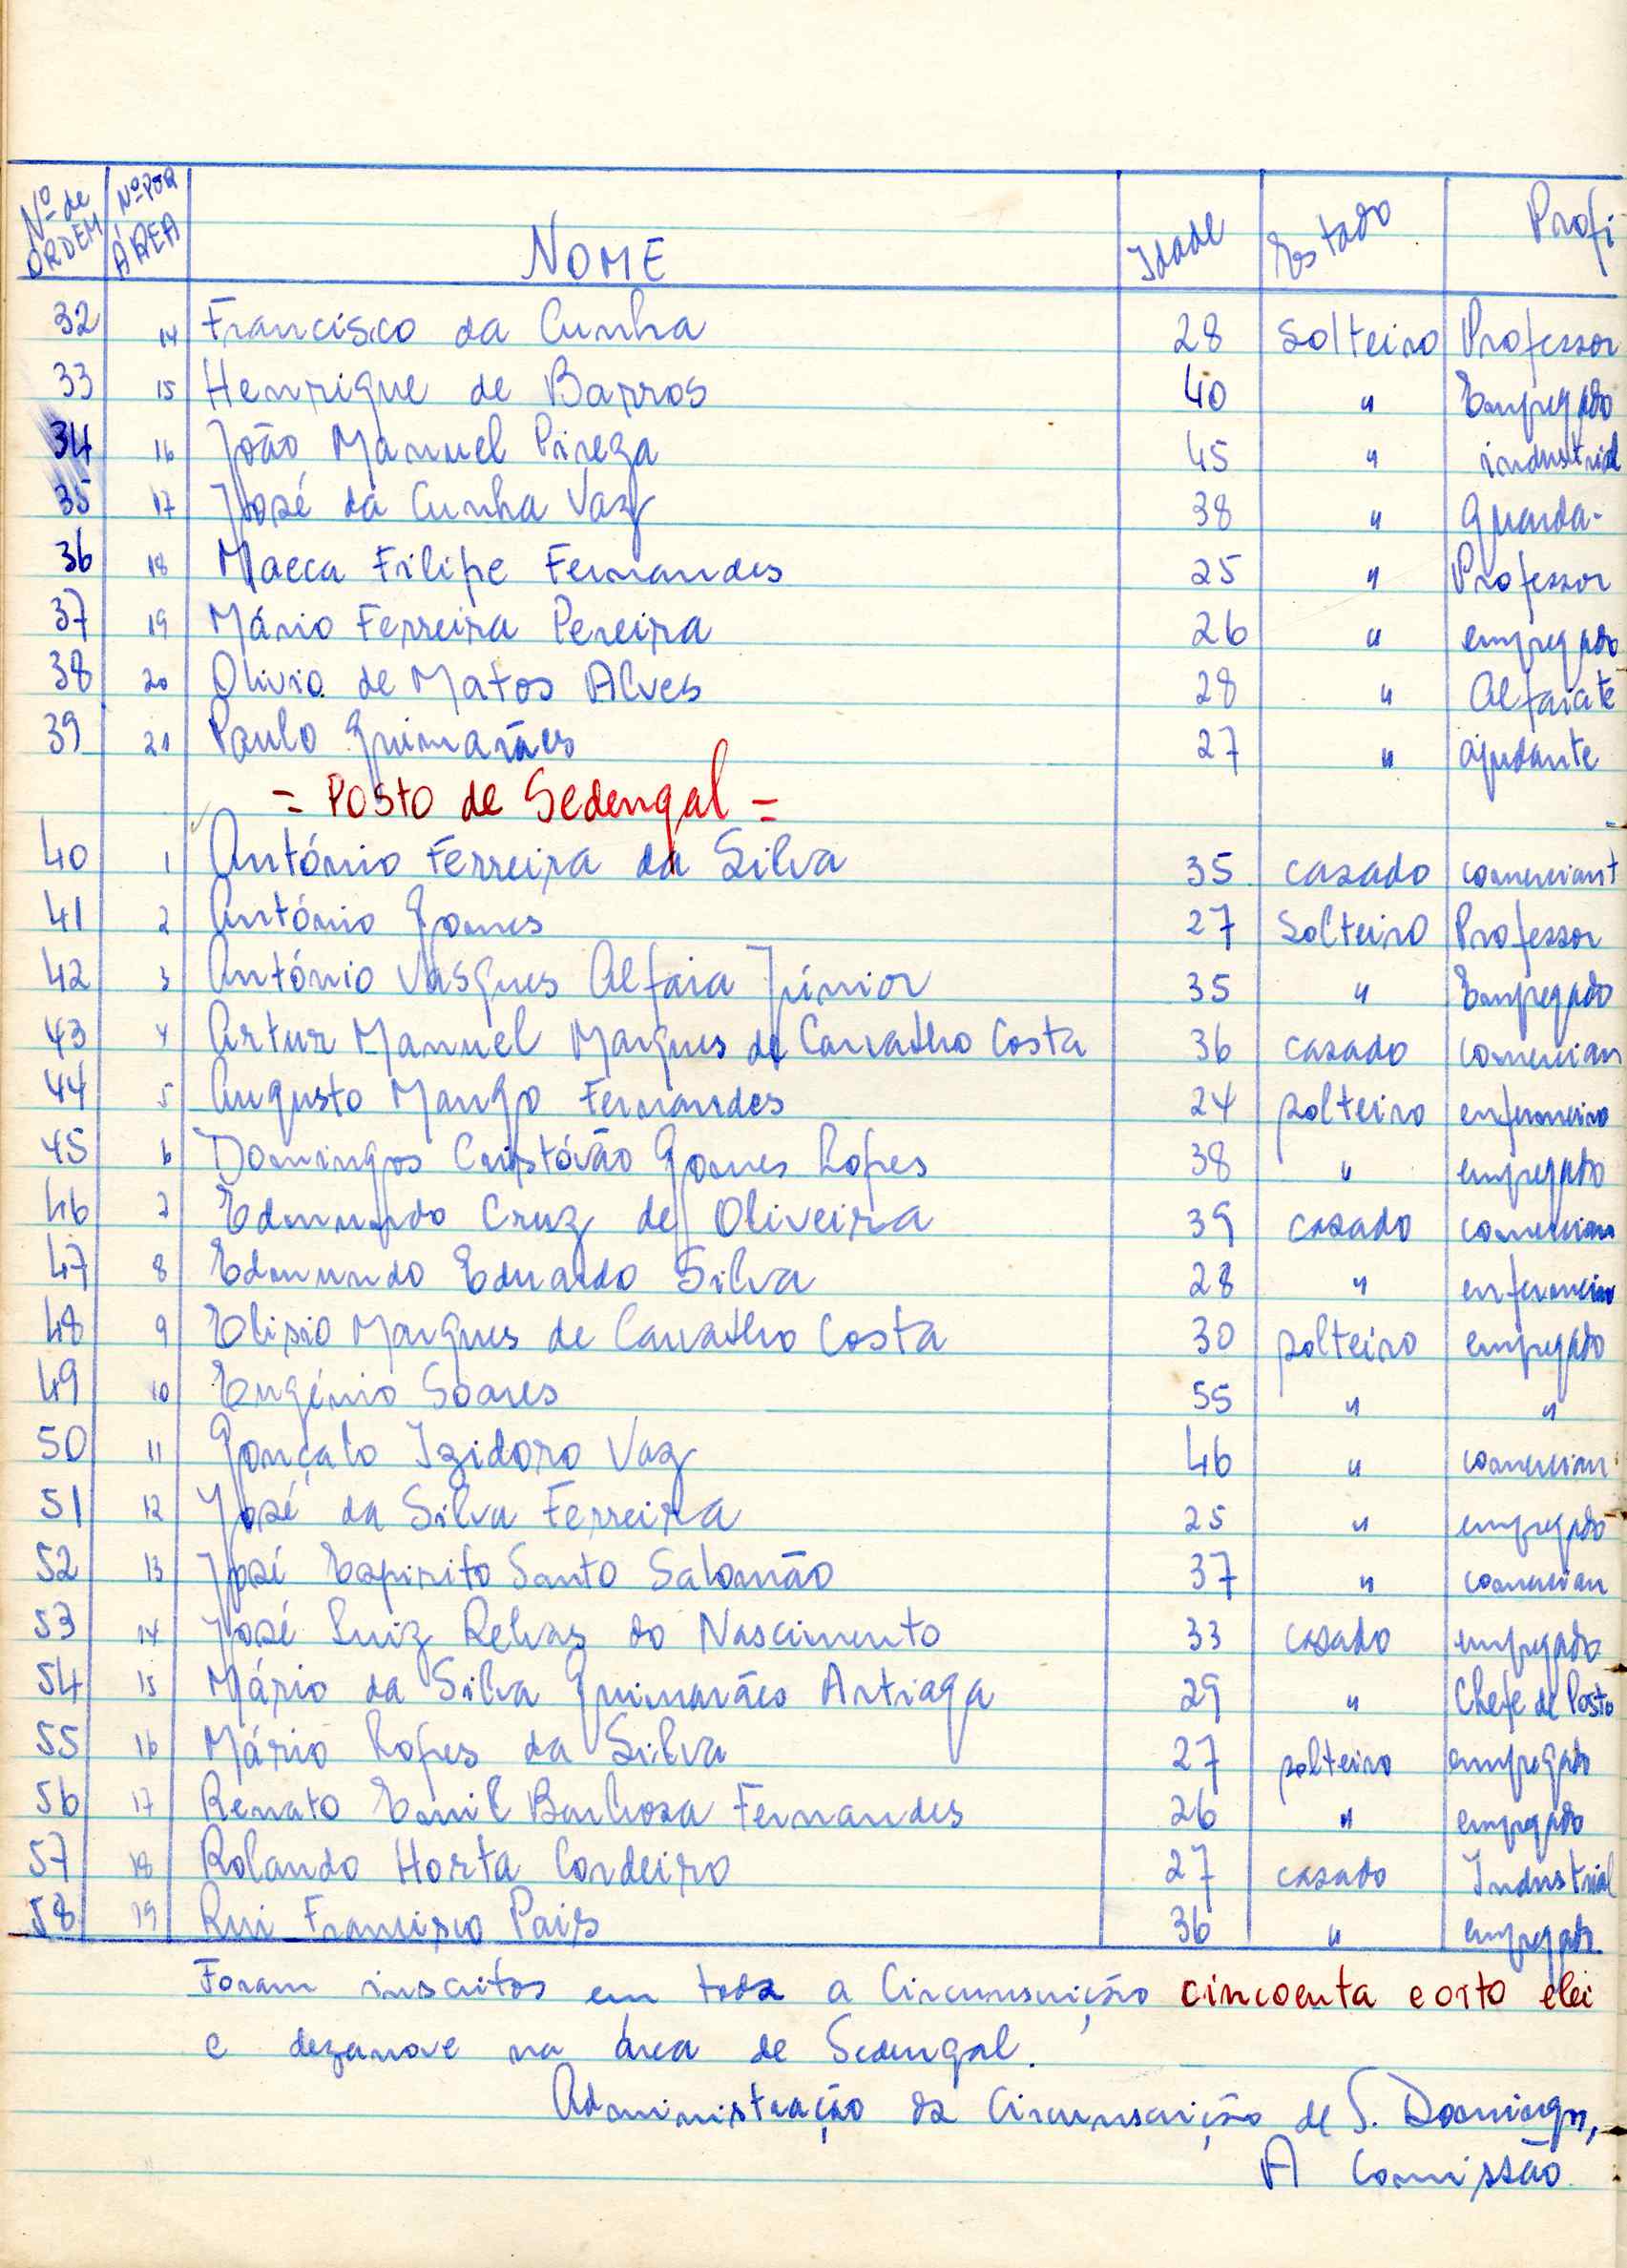 Nº de ORDEM Nº POR ÁREA NOME Idade Estado Profi
32 14 Francisco da Cunha 28 Solteiro Professor
33 15 Henrique de Barros 40 " Empregado
34 16 João Manuel Pireza 45 " industrial
35 17 José da Cunha Vaz 38 " Guarda-
36 18 Macca Filipe Fernandes 25 " Professor
37 19 Mário Ferreira Pereira 26 " empregado
38 20 Olivio de Matos Alves 28 " Alfaiate
39 21 Paulo Guimarães 27 " ajudante
= Posto de Sedengal =
40 1 António Ferreira da Silva 35 casado comerciant
41 2 António Gomes 27 Solteiro Professor
42 3 António Vasques Alfaia Júnior 35 " Empregado
43 4 Artur Manuel Marques de Carvalho Costa 36 casado comercian
44 5 Augusto Mango Fernandes 24 solteiro enfermeiro
45 6 Domingos Cristóvão Gomes Lopes 38 " empregado
46 7 Edmundo Cruz de Oliveira 39 casado comercian
47 8 Edmundo Eduardo Silva 28 " enfermeiro
48 9 Elisio Marques de Carvalho Costa 30 solteiro empregado
49 10 Eugénio Soares 55 " "
50 11 Gonçalo Izidoro Vaz 46 " comercian
51 12 José da Silva Ferreira 25 " empregado
52 13 José Espirito Santo Salomão 37 " comercian
53 14 José Luiz Relvas do Nascimento 33 casado empregado
54 15 Mário da Silva Guimarães Artiaga 29 " Chefe de Posto
55 16 Mário Lopes da Silva 27 solteiro empregado
56 17 Renato Emil Barbosa Fernandes 26 " empregado
57 18 Rolando Horta Cordeiro 27 casado Industrial
58 19 Rui Francisco Pais 36 " empregado
Foram inscritos em toda a Circunscrição cincoenta e oito elei
e dezanove na área de Sedengal.
Administração da Circunscrição de S. Domingos,
A Comissão